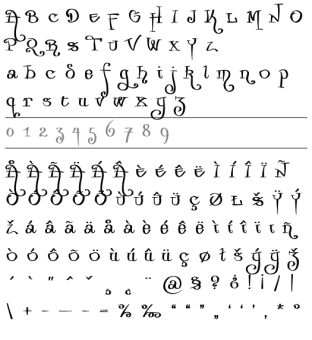 A B C D E F G H I J K L M N O
P Q R B S T U V W X Y Z
a b c d e f g h i j k l m n o p
q r s t u v w x y z
0 1 2 3 4 5 6 7 8 9
Å À Ã Ä Á Â è é ê ë Ì Í Î Ï Ñ
Ò Ó Ô Õ Ö Ù Ú Û Ü ç Ø Ł Š Ý Ÿ
Ž á â ã ä å à è é ê ë ì í î ï ñ
ò ó ô õ ö ù ú û ü ç ø ł š ý ÿ ž
@ § ? ¡ ! / |
\ + - — – = % ‰ “ “ ” „ ‘ ‘ ’ , * °